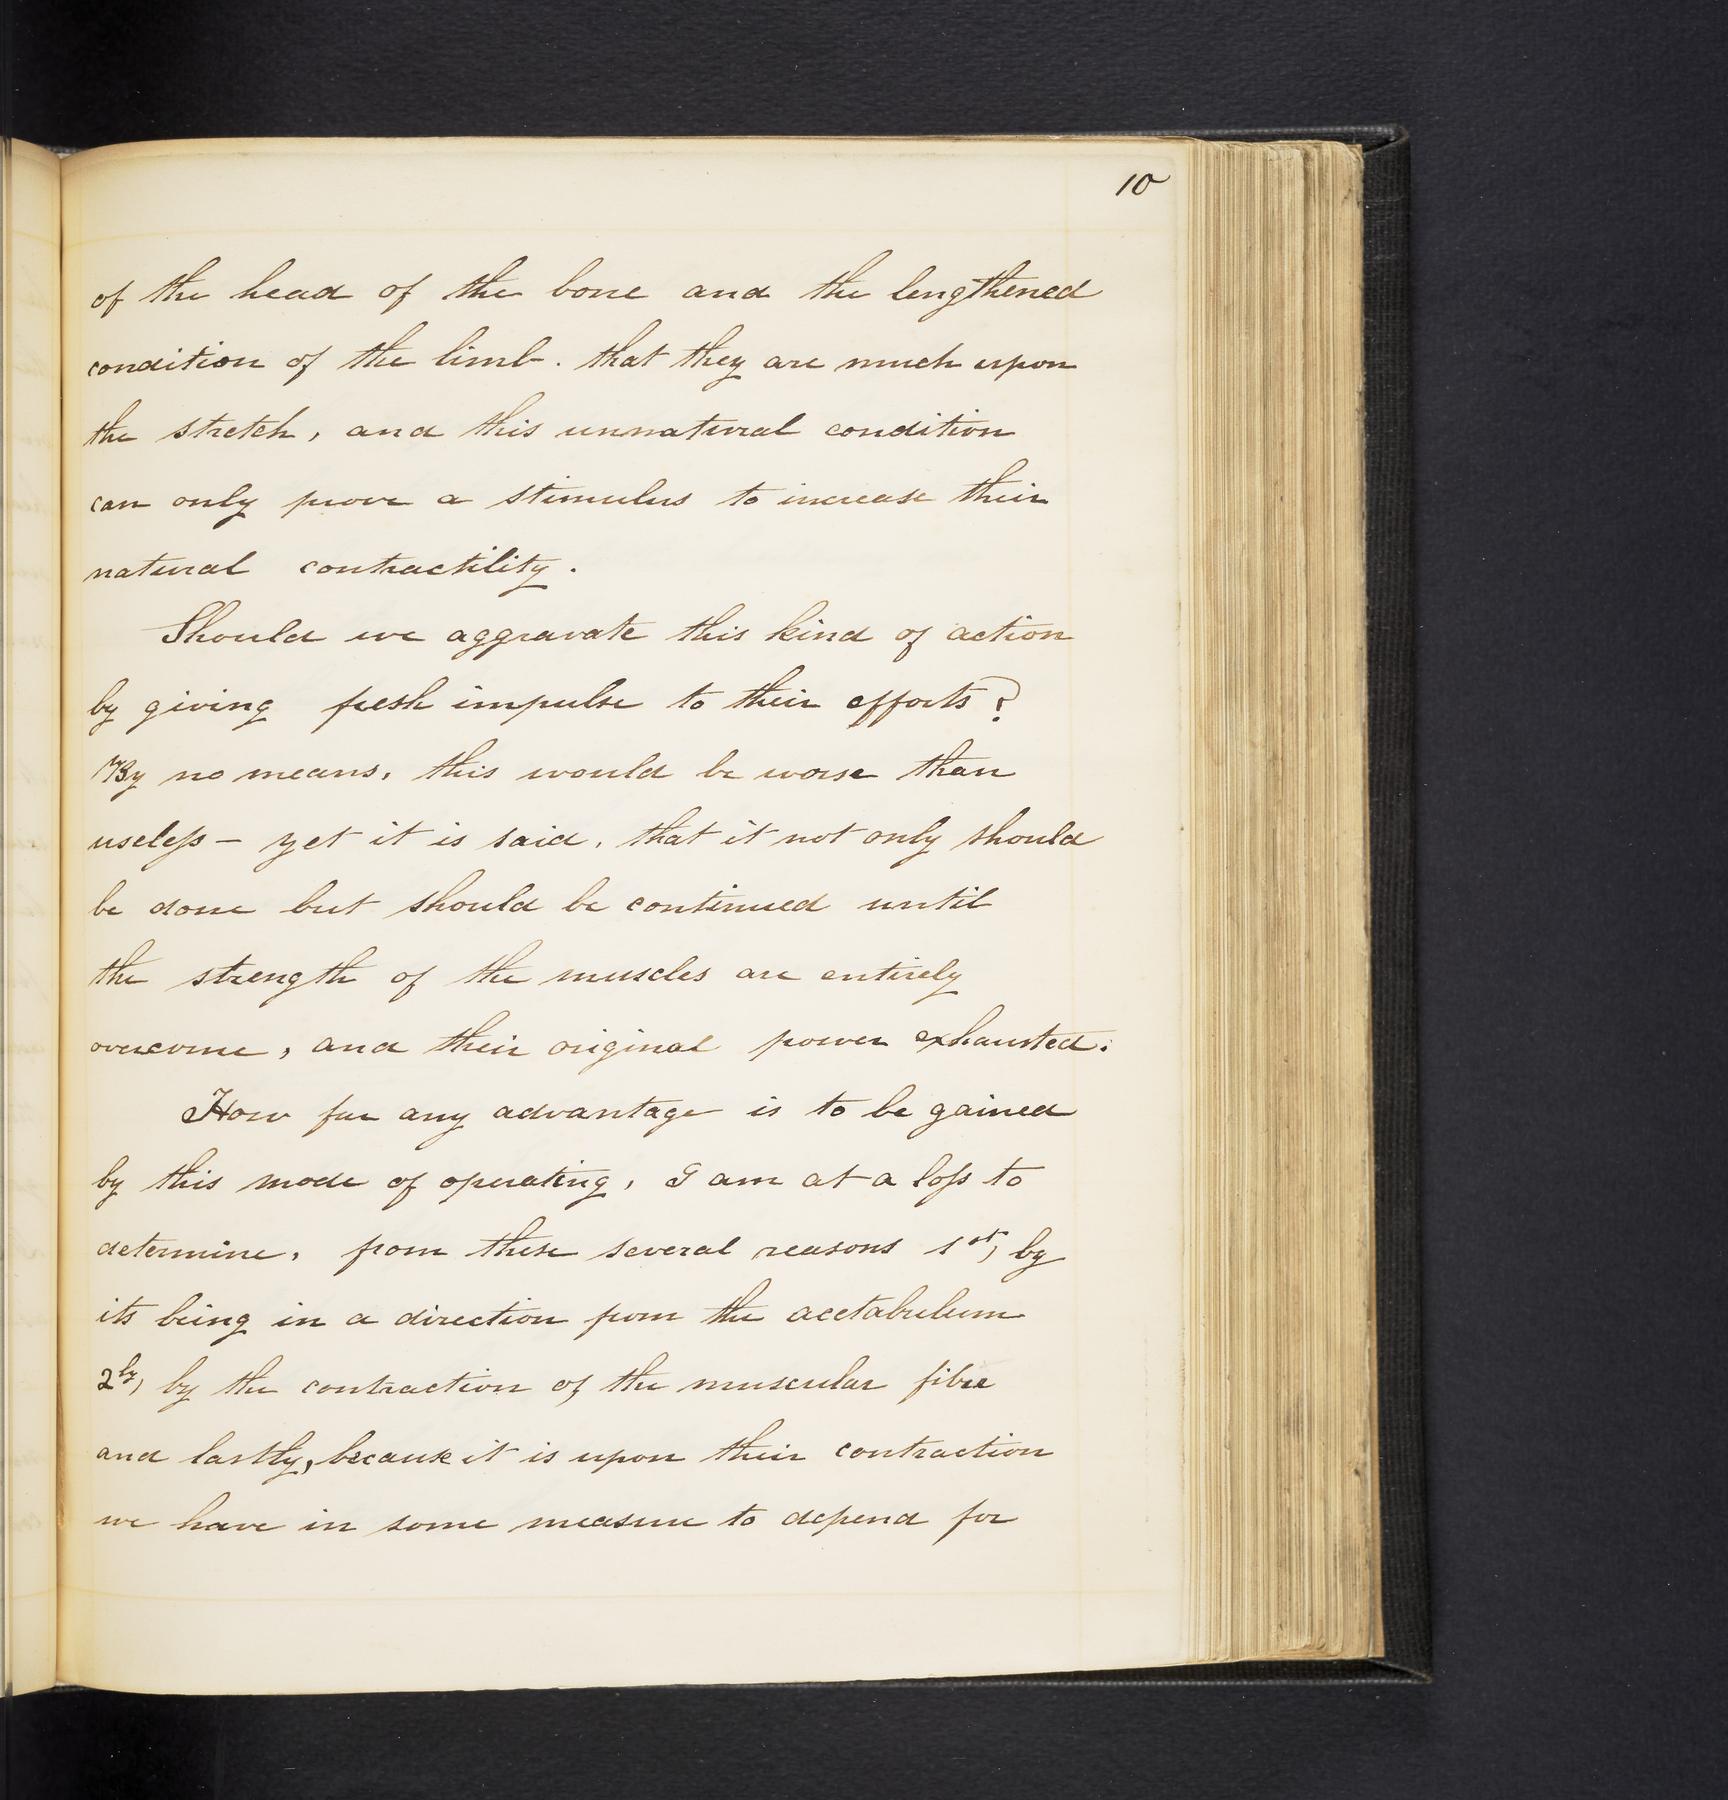 10
of the head of the bone and the lengthened
condition of the limb. that they are much upon
the stretch, and this unnatural condition
can only prove a stimulus to increase their
natural contractility.
Should we aggravate this kind of action
by giving fresh impulse to their efforts?
By no means, this would be worse than
useleſs – yet it is said, that it not only should
be done but should be continued until
the strength of the muscles are entirely
overcome, and their original power exhausted.
How far any advantage is to be gained
by this mode of operating, I am at a loſs to
determine, from these several reasons 1st, by
its being in a direction from the acetabulum
2ly, by the contraction of the muscular fibre
and lastly, because it is upon their contraction
we have in some measure to depend for